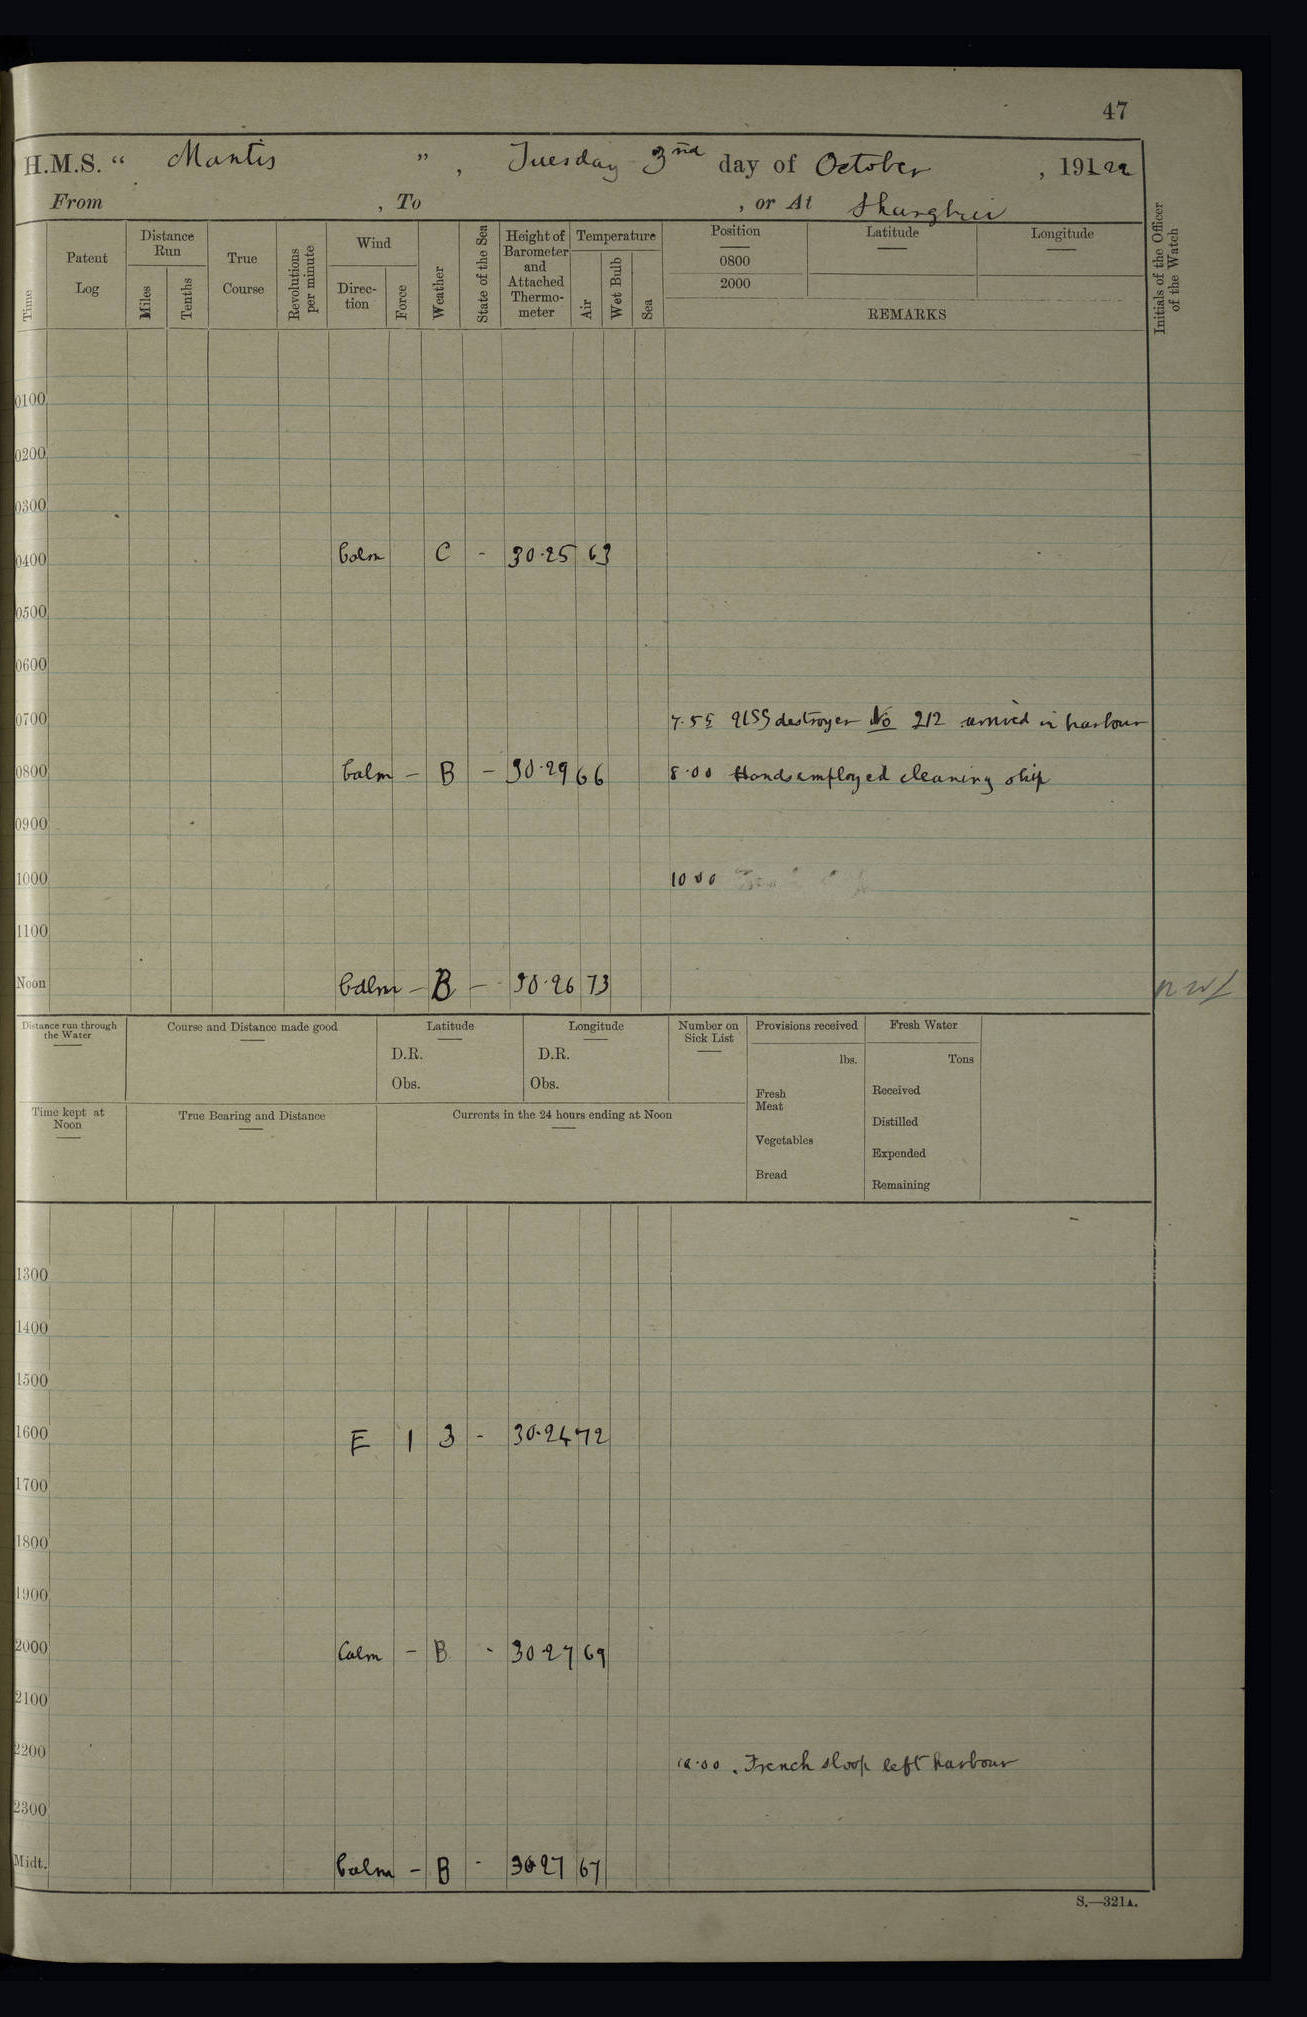 47
H.M.S. “ Mantis ” , Tuesday 3nd day of October , 191 22
From , To , or At Shanghai
Time
Patent Log
Distance Run
Miles
Tenths
True Course
Revolutions per minute
Wind
Direction
Force
Weather
State of the Sea
Height of Barometer and Attached Thermometer
Temperature
Air
Wet Bulb
Sea
Position
0800
2000
Latitude
Longitude
REMARKS
Initials of the Officer of the Watch
0100
0200
0300
0400 Calm C - 30.25 63
0500
0600
0700 7.55 USS destroyer No 212 arrived in harbour
0800 Calm - B - 30.29 66 8.00 Hands employed cleaning ship
0900
1000 10 00
1100
Noon Calm - B - 30.26 73
Distance run through the Water
Course and Distance made good
Latitude
D.R.
Obs.
Longitude
D.R.
Obs.
Number on Sick List
Provisions received
lbs.
Fresh Meat
Vegetables
Bread
Fresh Water
Tons
Received
Distilled
Expended
Remaining
Time kept at Noon
True Bearing and Distance
Currents in the 24 hours ending at Noon
1300
1400
1500
1600 E 1 3 - 30.24 72
1700
1800
1900
2000 Calm - B - 30.27 69
2100
2200 . French sloop left harbour
2300
Midt. Calm - B - 30 27 67
S.—321A.